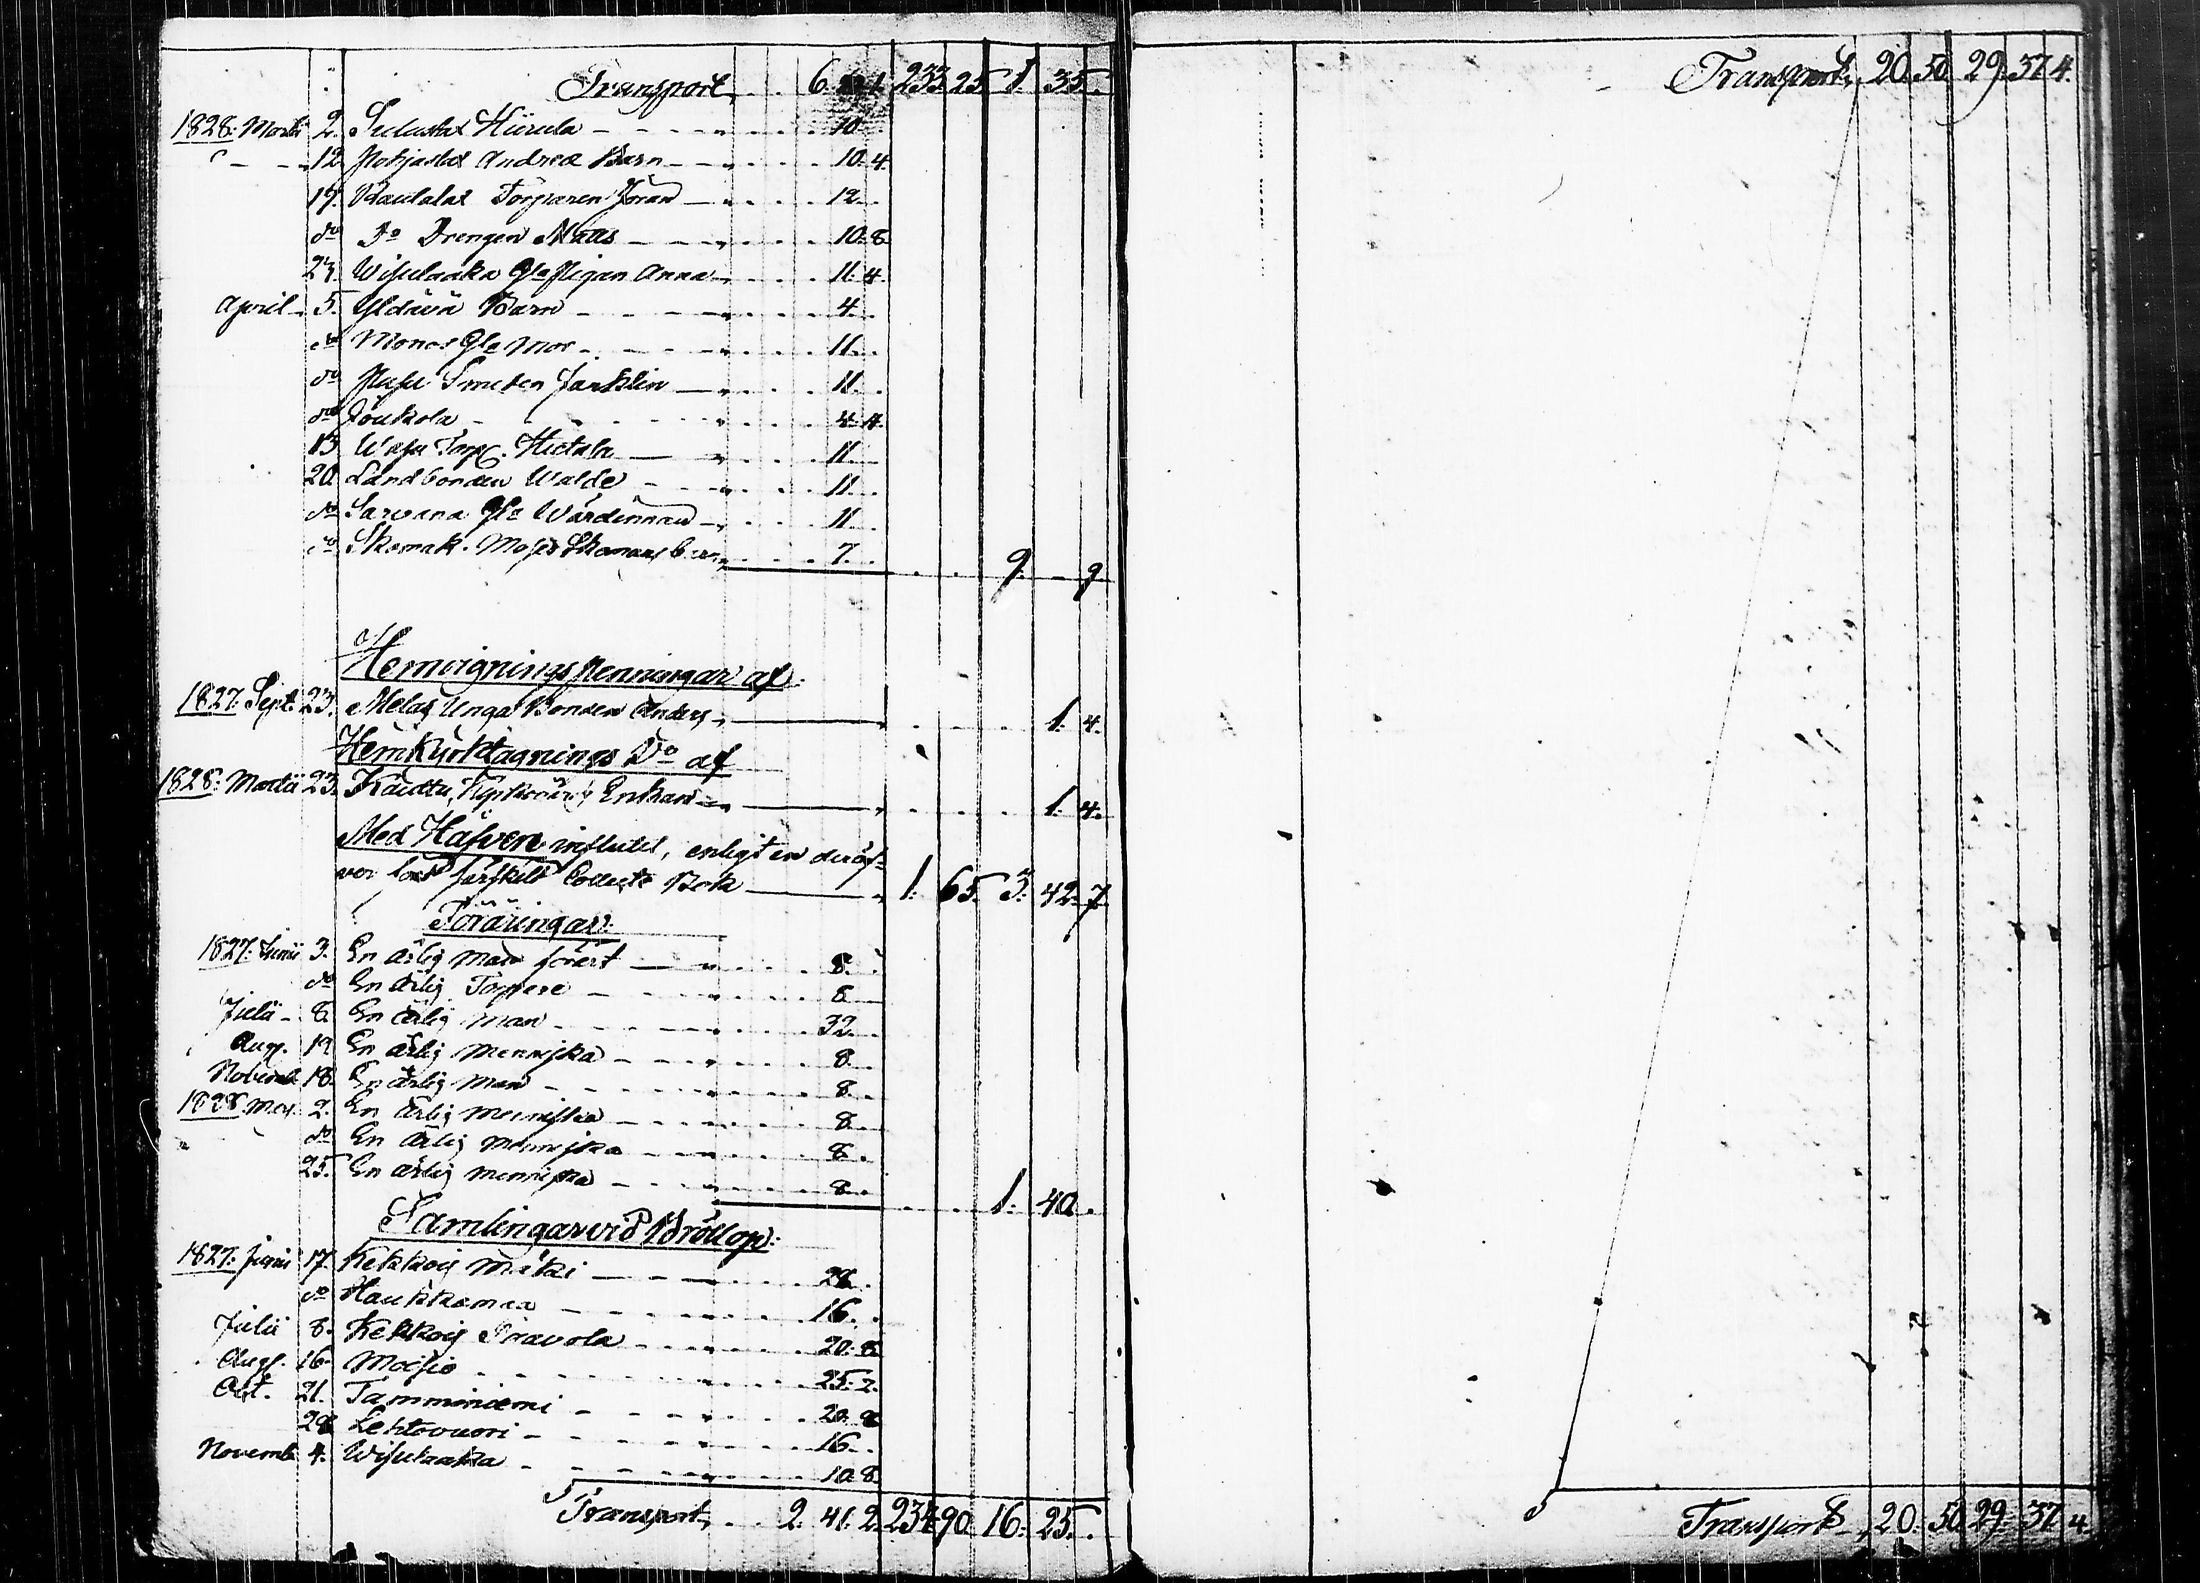 Transport, 6. 233. 25. 1. 35.
1828: Martii 2. Hiirula 10
12. Andreæ Barn 10. 4.
19. Rautalax Torparen Jöran 12.
do Do Drengen Matts 10. 8.
23. Wisulaaka Gla Pigan Anna 11. 4.
April 5. Yldävä Barn 4.
do Monas Gla Mor 11.
do Smeden 11.
do Joukola 4. 4.
13 Torp. Hietala 11.
20. Landbonden Walde 11.
do Sarvana Gla Wärdinnan 11.
do Skomak. 7. 9. 9
Hemvigningspenningar af:
1827: Sept. 23. Melas Unga Bonden Anders 1. 4.
Hemkyrktagnings Do af
1828: Martii 23. Enkan 1. 4.
Med Håfven influtit, enligt en deröf-
ver särskilt Collect Bok 1. 65. 3. 42. 7
Föräringar:
1827: Junii 3. En ärlig Man förärt 8.
do En ärlig Torpare 8
Julii 8. En ärlig Man 32.
Aug. 19 En ärlig Menniska 8.
Novemb. 18. En ärlig Man 8.
1828 Mar. 2. En ärlig Menniska 8.
do En ärlig Menniska 8.
25. En ärlig Menniska 8. 1. 40.
Samlingar vid Bröllop:
1827: Junii 17. Kekkois Mäki 28.
do Haukkamaa 16.
Julii 8. Kekkois Pravola 20. 8.
Aug. 16. Moisio 25. 2.
Oct. 21. Tamminiemi 20. 8
28 Lehtovuori 16.
Novemb. 4. Wisulaaka 10. 8.
Transport, 2. 41. 2. 234. 90. 16. 25.
Transport, 20. 50. 29. 37. 4.
Transport, 20. 50. 29. 37. 4.